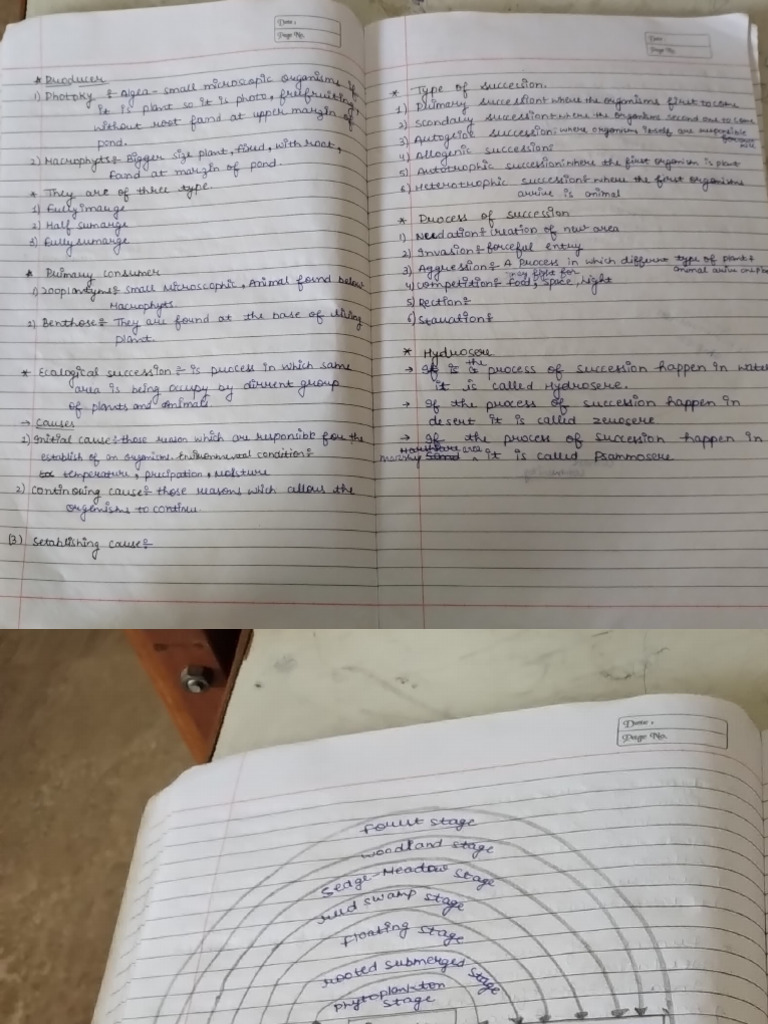 Date :
Page No.
* Producer
1) Photoky ÷ Algea - small microscopic organisms if
it is plant so it is photo, freefruiting,
without root fand at upper margin of
pond.
2) Macrophyts÷ Bigger size plant, fixed, with root,
fand at margin of pond.
* They are of three type.
1) Fully imarge
2) Half sumarge
3) Fully sumarge
* Primary consumer
1) zooplantyme÷ small microscophic, Animal found below
Macrophyts.
2) Benthose÷ They are found at the base of
plant.
* Ecalogical succession÷ is process in which same
area is being occupy by dirrent group
of plants and animals
→ Causes
1) Initial cause÷ those reason which are reponsibl for the
establish of an organisms. Enviornmental condition÷
temperature, precipation, moisture
2) Continuing cause÷ those reasons which allows the
orgenisms to continu.
(3) Setablishing cause÷
Date :
Page No.
* Type of succession.
1) Primary succession÷ where the organisms first to come
2) Scondary succession÷ where the organisms second one to come
3) Autogenic succession: where organism itself are responsible
4) Allogenic succession÷
5) Autotrophic succession÷ where the first organism is plant
6) Heterotrophic succession÷ where the first organisms
arrive is animal
* Process of succession
1) Needation÷ creation of new area
2) Invasion÷ forceful entry
3) Aggression÷ A process in which different type of plant &
animal arive
4) competition÷ they fight for food, space, light
5) Rection÷
6) Stauation÷
* Hydrosere
→ If is the process of succession happen in water
it is called Hydrosere.
→ If the process of succession happen in
desert it is called zenosere
→ If the process of succession happen in
marshy area, it is called Psammosere
Date :
Page No.
Forest stage
woodland stage
Sedge-Meadow Stage
reed swamp stage
Floating stage
rooted submerges stage
phytoplankton
stage